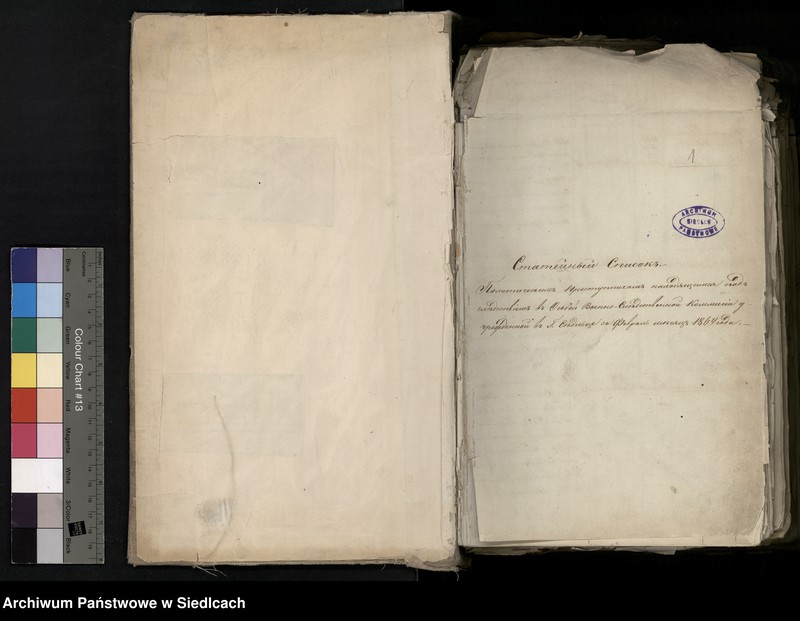 1
ARCHIWUM
SIEDLCE
PAŃSTWOWE
Статейный Списокъ.
Политическимъ Преступникамъ находящимся подъ
слѣдствіемъ въ Особой Военно-Слѣдственной Коммисіи у
чрежденной въ Г. Сѣдльцѣ съ Февраля мѣсяца 1864 года.
Colour Chart #13
Blue
Cyan
Green
Yellow
Red
Magenta
White
3/Color
Black
Centimetres
Archiwum Państwowe w Siedlcach